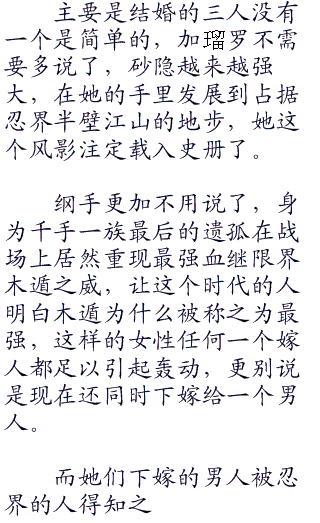 主要是结婚的三人没有
一个是简单的，加瑠罗不需
要多说了，砂隐越来越强
大，在她的手里发展到占据
忍界半壁江山的地步，她这
个风影注定载入史册了。
纲手更加不用说了，身
为千手一族最后的遗孤在战
场上居然重现最强血继限界
木遁之威，让这个时代的人
明白木遁为什么被称之为最
强，这样的女性任何一个嫁
人都足以引起轰动，更别说
是现在还同时下嫁给一个男
人。
而她们下嫁的男人被忍
界的人得知之